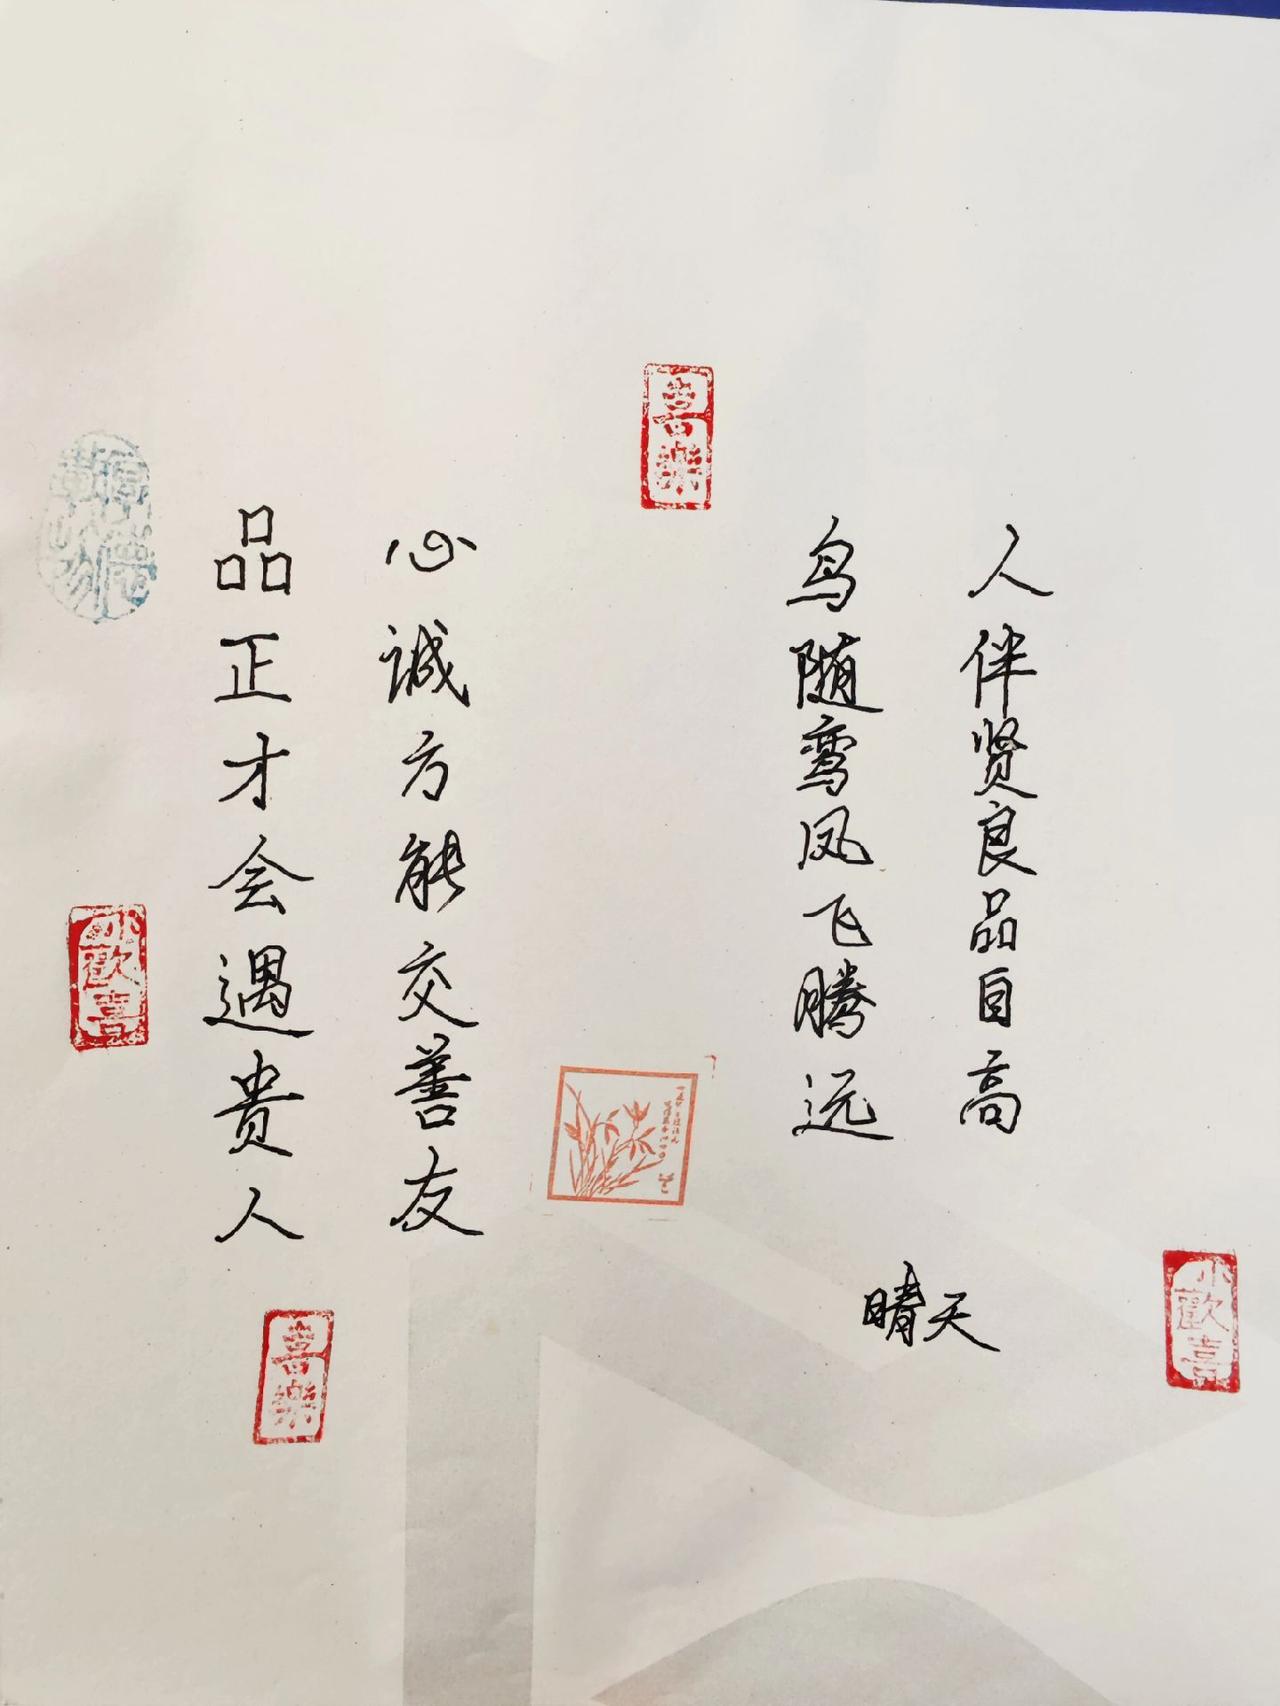 人伴贤良品自高
鸟随鸾凤飞腾远
晴天
喜樂
心诚方能交善友
品正才会遇贵人
小歡喜
喜樂
小歡喜
厚德載物